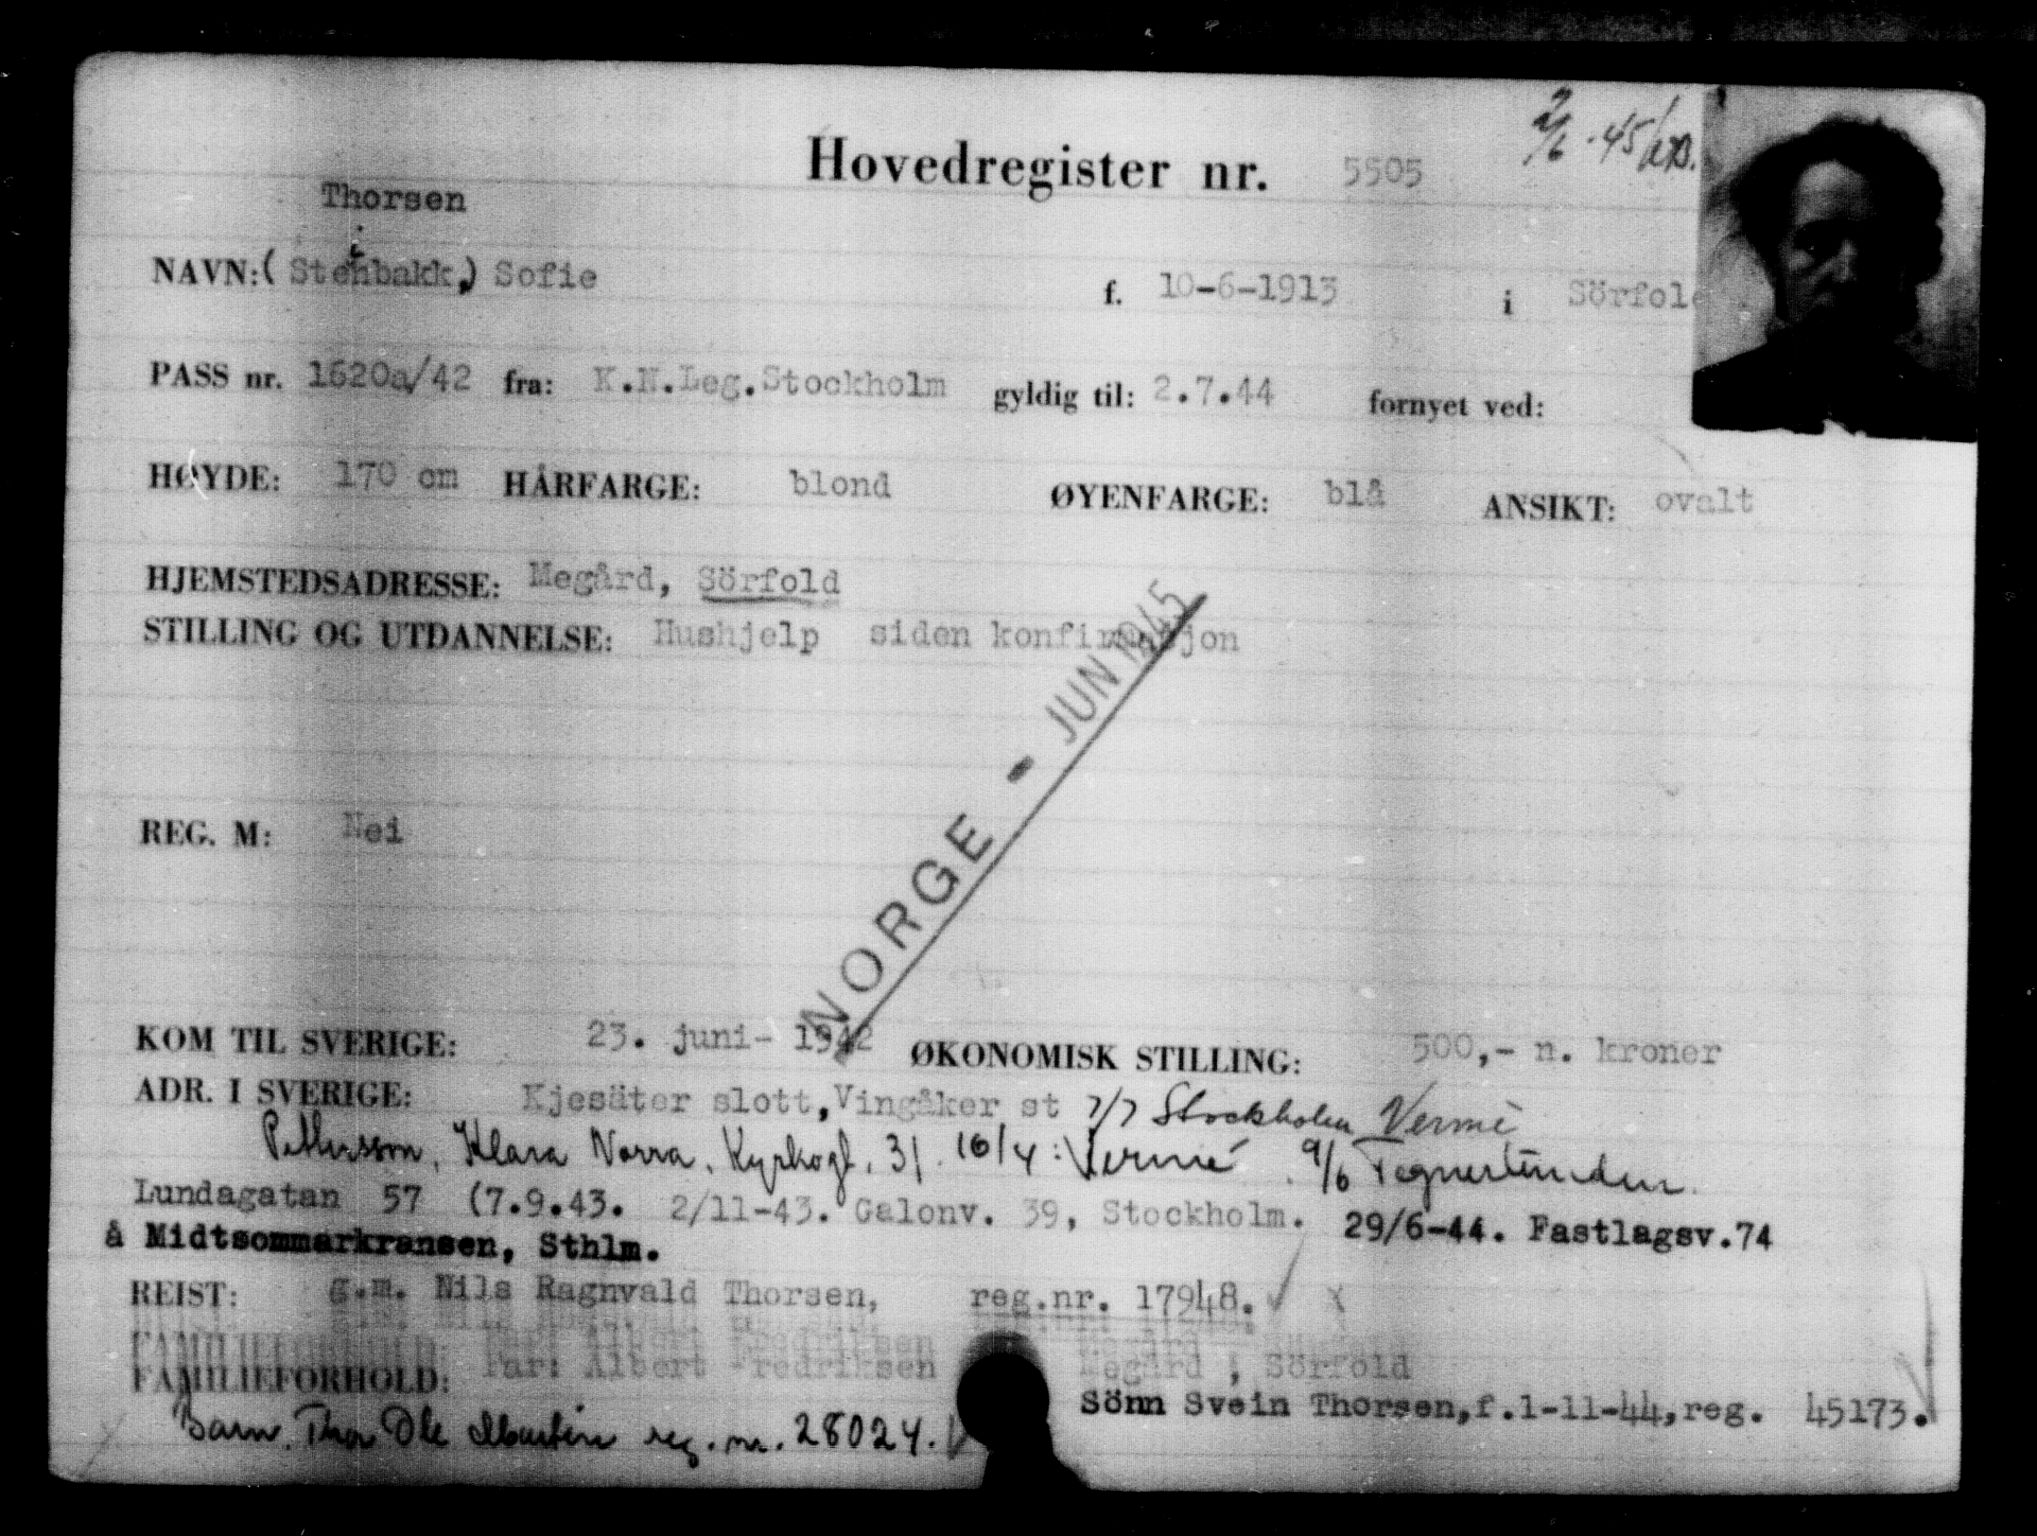 2/6 -45/
Hovedregister nr. 5505
Thorsen
i
NAVN: (Stenbakk,) Sofie f. 10-6-1913 i Sörfold
PASS nr. 1620a/42 fra: K.N.Leg.Stockholm gyldig til: 2.7.44 fornyet ved:
HØYDE: 170 cm HÅRFARGE: blond ØYENFARGE: blå ANSIKT: ovalt
HJEMSTEDSADRESSE: Megård, Sörfold
STILLING OG UTDANNELSE: Hushjelp siden konfirmasjon
NORGE - JUN 1945
REG. M: Nei
KOM TIL SVERIGE: 23. juni- 1942 ØKONOMISK STILLING: 500,- n. kroner
ADR. I SVERIGE: Kjesäter slott,Vingåker st 7/7 Stockholm Vermé
Pettersson, Klara Norra, Kyrkogt, 31. 16/4: Vermé. 9/6 Tegnerlunden.
Lundagatan 57 (7.9.43. 2/11-43. Galonv. 39, Stockholm. 29/6-44. Fastlagsv.74
å Midtsommarkransen, Sthlm.
REIST: g.m. Nils Ragnvald Thorsen, reg.nr. 17948.
FAMILIEFORHOLD: Far: Albert Fredriksen Megård, Sörfold
Sönn Svein Thorsen,f.1-11-44,reg. 45173.
Barn. Thor Ole Martin reg. nr. 28024.